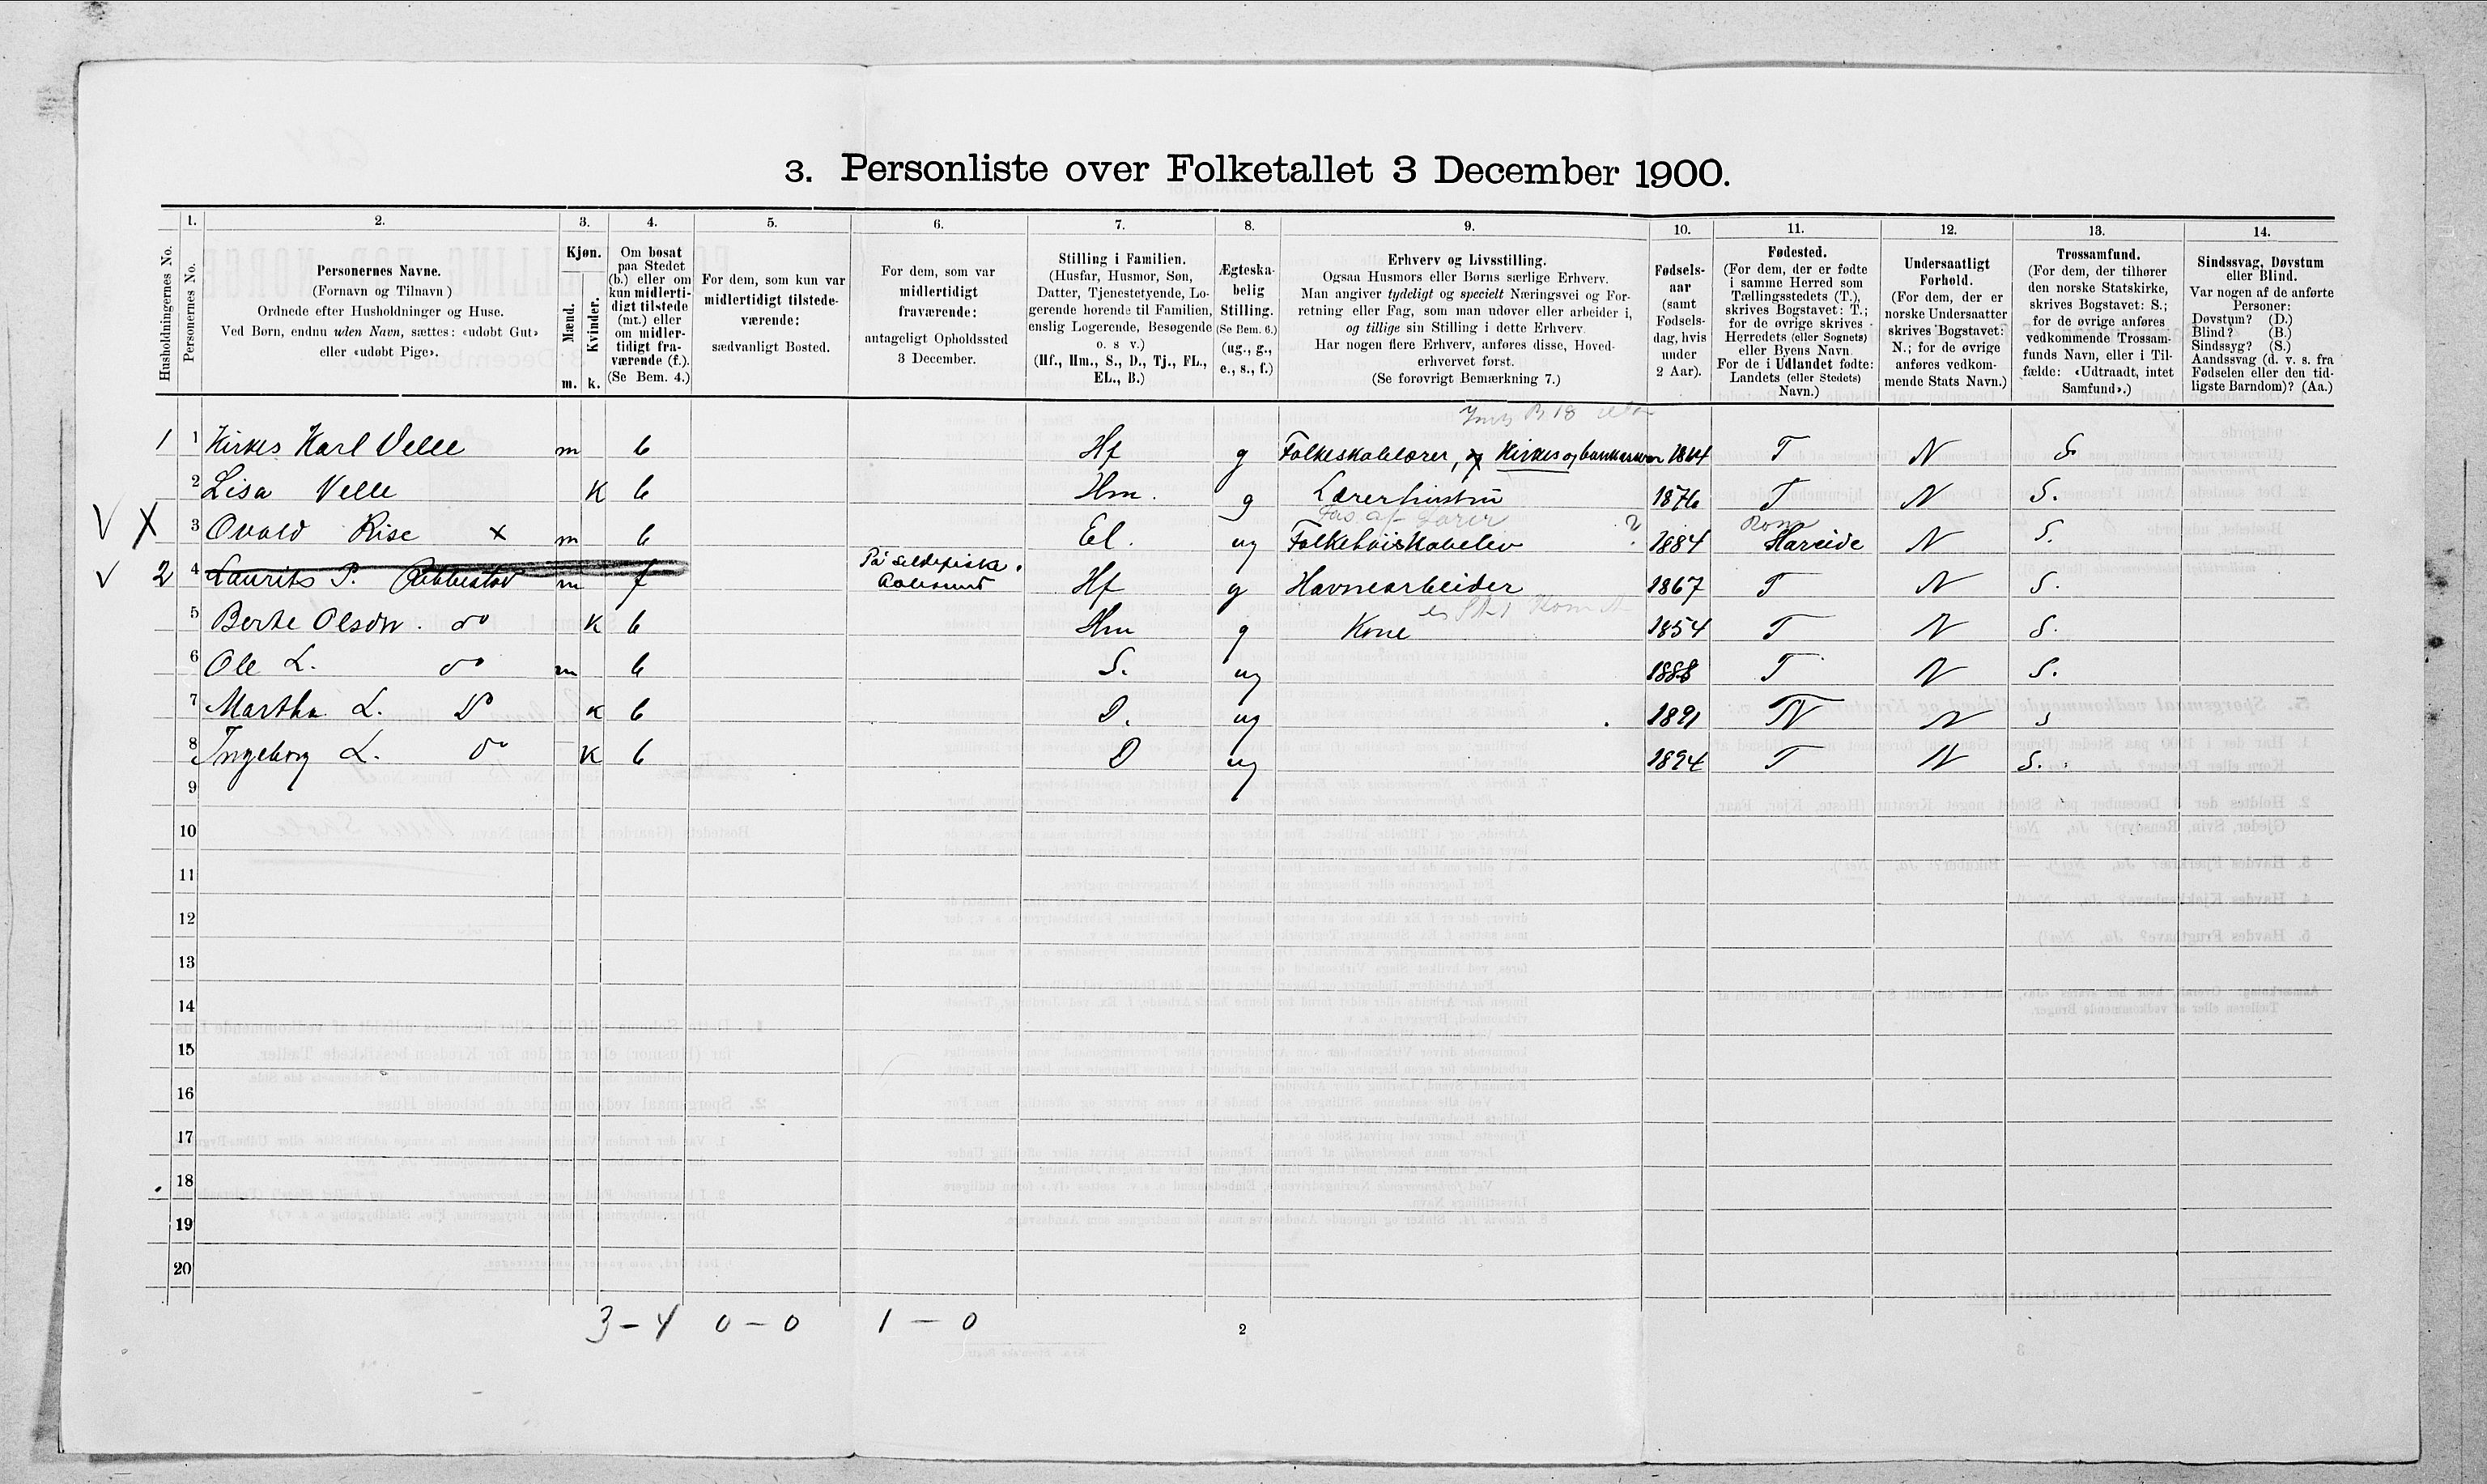 3. Personliste over Folketallet 3 December 1900.
1. 2. 3. 4. 5. 6. 7. 8. 9. 10. 11. 12. 13. 14.
Husholdningernes No.
Personernes No.
Personernes Navne.
(Fornavn og Tilnavn)
Ordnede efter Husholdninger og Huse.
Ved Børn, endnu uden Navn, sættes: «udøbt Gut»
eller «udøbt Pige».
Kjøn.
Mænd.
Kvinder.
m. k.
Om bosat
paa Stedet
(b.) eller om
kun midlerti-
digt tilstede
(mt.) eller
om midler-
tidigt fra-
værende (f.).
(Se Bem. 4.)
For dem, som kun var
midlertidigt tilstede-
værende:
sædvanligt Bosted.
For dem, som var
midlertidigt
fraværende:
antageligt Opholdssted
3 December.
Stilling i Familien.
(Husfar, Husmor, Søn,
Datter, Tjenestetyende, Lo-
gerende hørende til Familien,
enslig Logerende, Besøgende
o. s v.)
(Hf., Hm., S., D., Tj., FL.,
EL., B.)
Ægteska-
belig
Stilling.
(Se Bem. 6.)
(ug., g.,
e., s., f.)
Erhverv og Livsstilling.
Ogsaa Husmors eller Børns særlige Erhverv.
Man angiver tydeligt og specielt Næringsvei og For-
retning eller Fag, som man udøver eller arbeider i,
og tillige sin Stilling i dette Erhverv.
Har nogen flere Erhverv, anføres disse, Hoved-
erhvervet først.
(Se forøvrigt Bemærkning 7.)
Fødsels-
aar
(samt
Fødsels-
dag, hvis
under
2 Aar).
Fødested.
(For dem, der er fødte
i samme Herred som
Tællingsstedets (T.),
skrives Bogstavet: T.;
for de øvrige skrives
Herredets (eller Sognets)
eller Byens Navn.
For de i Udlandet fødte:
Landets (eller Stedets)
Navn.)
Undersaatligt
Forhold.
(For dem, der er
norske Undersaatter
skrives Bogstavet:
N.; for de øvrige
anføres vedkom-
mende Stats Navn.)
Trossamfund.
(For dem, der tilhører
den norske Statskirke,
skrives Bogstavet: S.;
for de øvrige anføres
vedkommende Trossam-
funds Navn, eller i Til-
fælde: «Udtraadt, intet
Samfund».)
Sindssvag, Døvstum
eller Blind.
Var nogen af de anførte
Personer:
Døvstum? (D.)
Blind? (B.)
Sindssyg? (S.)
Aandssvag (d. v. s. fra
Fødselen eller den tid-
ligste Barndom)? (Aa.)
B 18
1 1 Kirkes Karl Velle m b Hf g Folkeskolelærer, og Kirkes og 1864 T N S
2 Lisa Velle K b Hm. g Lærerhustru 1876 T N S.
af Lærer
V X 3 Ovald Rise x m b El. ug Folkehøiskoleelev ? 1884 Hareide N S.
På sildefiske.
V 2 4 Laurits P. Ribbestad m f Aalesund Hf g Havnearbeider 1867 T N S.
5 Berte Olsdtr. do K b Hm g Kone 1854 T N S.
6 Ole L. do m b S. ug 1888 T N S.
7 Martha L. do K b D. ug 1891 T N S
8 Ingeborg L. do K b D ug 1894 T N S.
9
10
11
12
13
14
15
16
17
18
19
20
3 - 4 0 - 0 1 - 0
2